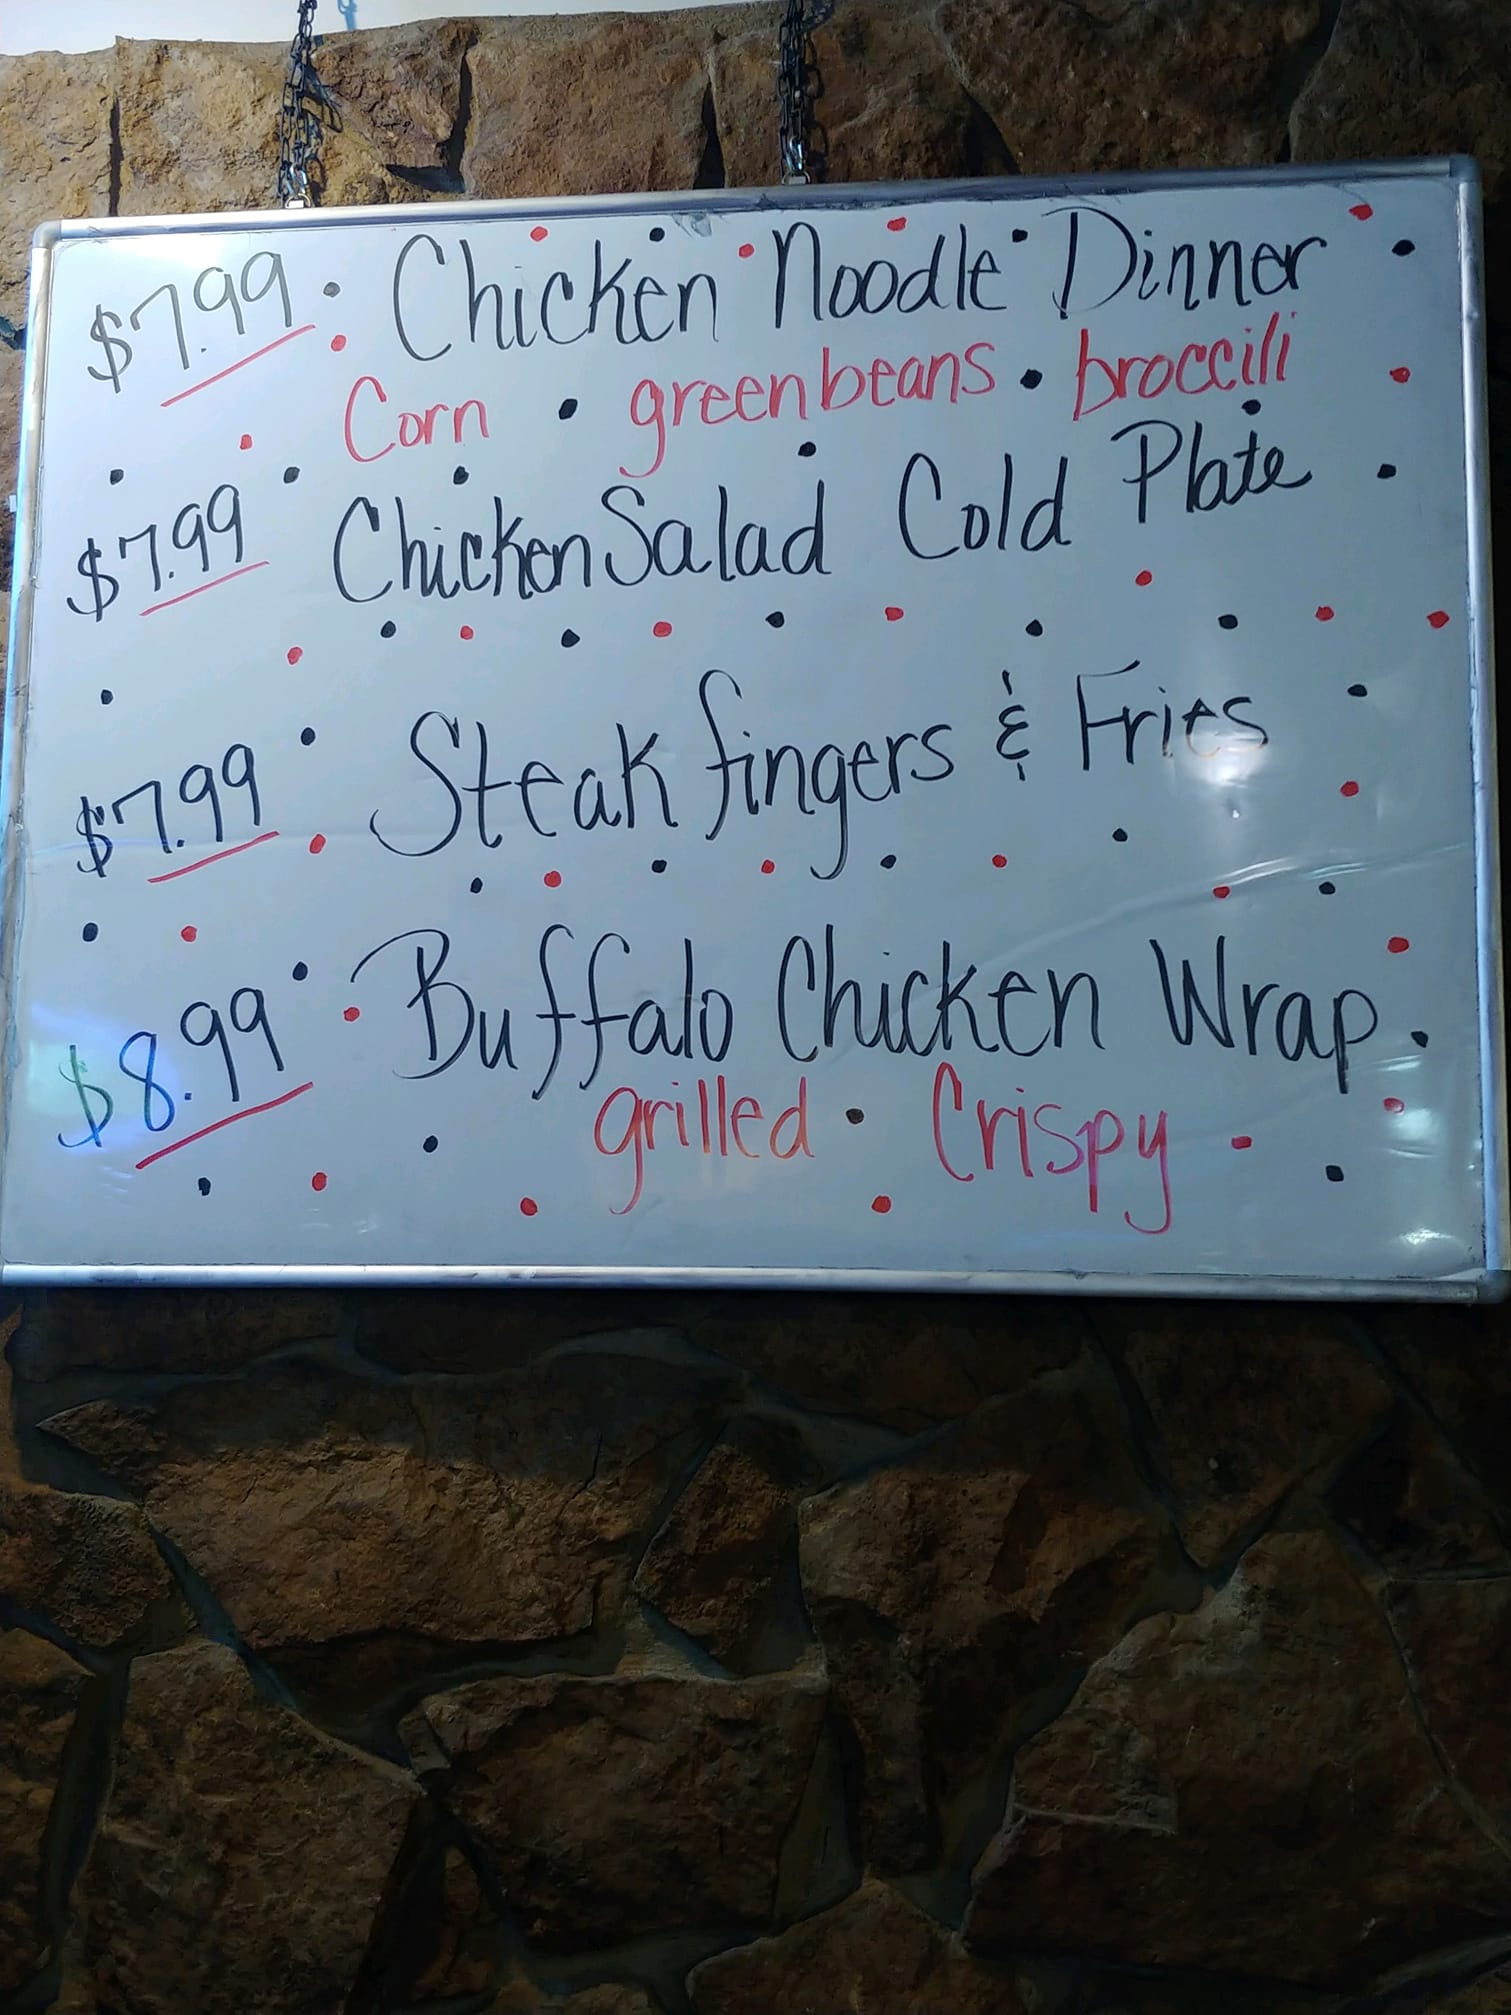 $7.99 Chicken Noodle Dinner
Corn • greenbeans • broccili
$7.99 Chicken Salad Cold Plate
$7.99 Steak fingers & Fries
$8.99 Buffalo Chicken Wrap
grilled • Crispy